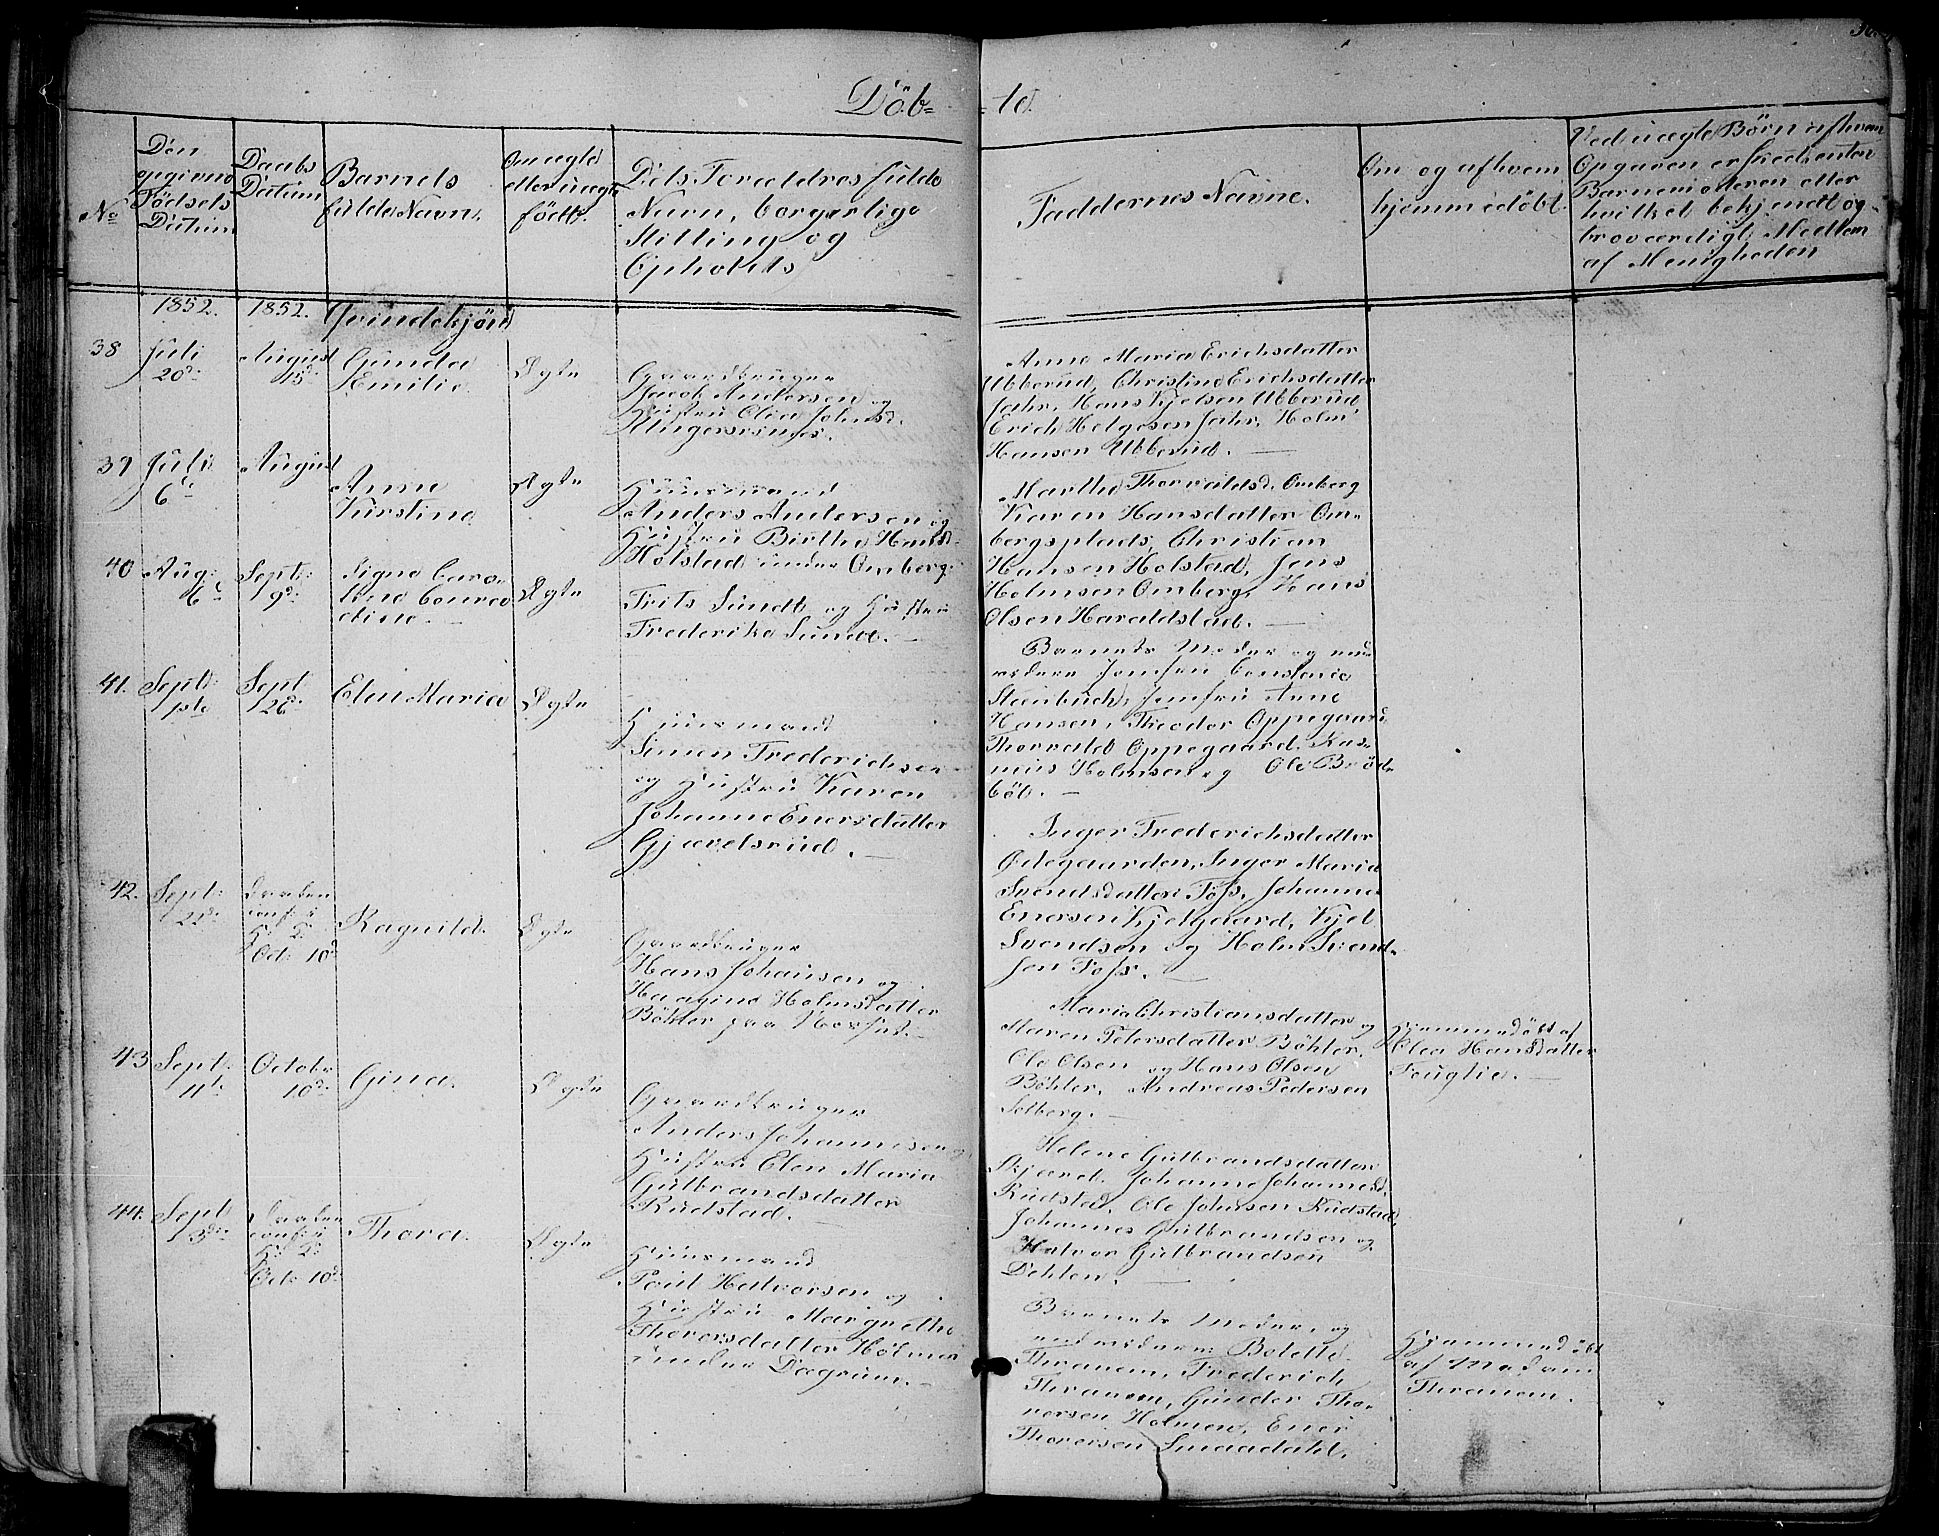 Döb-
-te.
No
Den
opgivne
Födsels
Datum
Daabs
Datum
Barnets
fulde Navn.
Om ægte
eller uægte
födt.
Dets Forældres fulde
Navn, borgerlige
Stilling og
Opholds
Faddernes Navne.
Om og af hvem
hjemmedöbt.
Ved uægte Börn af hvem
Opgaven er
Barnemoderen eller
hvilket bekjendt og
troværdigt Medlem
af Menigheden
1852. 1852. Qvindekjön
38 Juli
20de
August
15de
Gunda
Emilie
Ægte
Gaardbruger
Jacob Andersen og
Hustru Olia Johnsd.
Anne Maria Erichsdatter
Ubberud, Christine Erichsdatter
Jahr, Hans Kjelsen Ubberud
Erich Helgesen Jahr, Holm
Hansen Ubberud. —
39 Juli
6te
August
Anne
Kirstine
Ægte
Huusmand
Anders Andersen og
Hustru Birthe Hansd.
Holstad under Omberg.
Marthe Thorvaldsd. Omberg
Karen Hansdatter Om-
bergsplads, Christian
Hansen Holstad, Jens
Holmsen Omberg, Hans
Olsen Haraldstad. —
40 Aug:
6te
Sept:
9de
Signe Caro-
line Conra
dine. —
Ægte
Frits Sundt og Hustru
Frederike Sundt. —
Barnets Moder og
Jomfru Constance
Steenbuch, Jomfru Anne
Hansen, Theodor Oppegaard
Thorvald Oppegaard, Ras-
mus Holmsen og Ole Bröde
böl. —
41. Sept:
1ste
Sept
26de
Elen Maria
Ægte
Huusmand
Simen Frederichsen
og Hustru Karen
Johanne Enersdatter
Gjævelsrud. —
Inger Frederichsdatter
Ödegaarden, Inger Maria
Svendsdatter Foss, Johannes
Enersen Kjelgaard, Kjel
Svendsen og Holm Svend-
sen Foss. —
42. Sept:
22de
Daaben
conf: i
K. D.
Oct: 10de
Ragnild.
Ægte
Gaardbruger
Hans Johansen og
Haagine Holmsdatter
Böhler paa
Maria Christiansdatter og
Maren Petersdatter Böhler.
Ole Olsen og Hans Olsen
Böhler, Andreas Pedersen
Solberg. —
Hjemmedöbt af
Olea Hansdatter
Fouglie. —
43 Sept:
11te
October
10de
Gina.
Ægte
Gaardbruger
Anders Johannesen og
Hustru Elen Maria
Gulbrandsdatter
Rudstad. —
Helene Gulbrandsdatter
Johanne Johannesd.
Rudstad, Ole Johnsen Rudstad,
Johannes Gulbrandsen og
Halvor Gulbrandsen
Dehlen. —
44. Sept
3die
Daaben
conf: i
K: D:
Oct: 10de
Thora.
Ægte
Huusmand
Poul Halvorsen og
Hustru Margrethe
Thoversdatter Holmen
under Dagrum. —
Barnets Moder, og
Bolette
Thranem, Frederich
Thranem, Gunder Tho-
versen Holmen, Ener
Thoversen Smaadahl.
Hjemmedöbt
af Madam
Thranem.